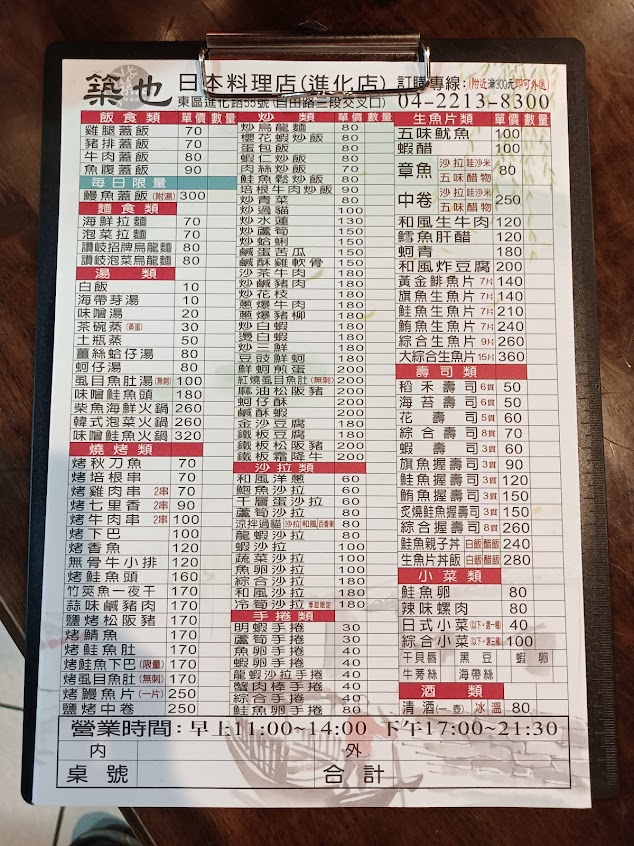 築也 日本料理店(進化店) 訂購專線:(附近滿300元即可外送)
東區進化路55號(自由路三段交叉口) 04-2213-8300
飯食類 單價 數量
雞腿蓋飯 70
豬排蓋飯 70
牛肉蓋飯 80
魚腹蓋飯 90
每日限量
鰻魚蓋飯(附湯) 300
麵食類 單價 數量
海鮮拉麵 70
泡菜拉麵 70
讚岐招牌烏龍麵 80
讚岐泡菜烏龍麵 80
湯類 單價 數量
白飯 10
海帶芽湯 10
味噌湯 20
茶碗蒸(蒸蛋) 30
土瓶蒸 50
薑絲蛤仔湯 80
蚵仔湯 80
虱目魚肚湯(無刺) 100
味噌鮭魚頭 180
柴魚海鮮火鍋 260
韓式泡菜火鍋 260
味噌鮭魚火鍋 320
燒烤類 單價 數量
烤秋刀魚 70
烤培根串 70
烤雞肉串 2串 70
烤七里香 2串 90
烤牛肉串 2串 100
烤下巴 100
烤香魚 120
無骨牛小排 120
烤鮭魚頭 160
竹筴魚一夜干 170
蒜味鹹豬肉 170
鹽烤松阪豬 170
烤鯖魚 170
烤鮭魚肚 170
烤鮭魚下巴(限量) 170
烤虱目魚肚(無刺) 170
烤鰻魚片(一片) 250
鹽烤中卷 250
炒類 單價 數量
炒烏龍麵 80
櫻花蝦炒飯 80
蛋包飯 80
蝦仁炒飯 80
肉絲炒飯 80
鮭魚鬆炒飯 80
培根牛肉炒飯 90
炒青菜 80
炒過貓 100
炒水蓮 130
炒蘆筍 150
炒蛤蜊 150
鹹蛋苦瓜 150
鹹酥雞軟骨 150
沙茶牛肉 180
炒鹹豬肉 180
炒花枝 180
蔥爆牛肉 180
蔥爆豬柳 180
炒白蝦 180
燙白蝦 180
炒三鮮 180
豆豉鮮蚵 180
鮮蚵煎蛋 200
紅燒虱目魚肚(無刺) 200
麻油松阪豬 200
蚵仔酥 200
鹹酥蝦 200
金沙豆腐 180
鐵板豆腐 180
鐵板松阪豬 200
鐵板霜降牛 200
沙拉類 單價 數量
和風洋蔥 60
鮑魚沙拉 60
千層蛋沙拉 60
蘆筍沙拉 80
涼拌過貓 沙拉 和風 百香果 80
龍蝦沙拉 80
蝦沙拉 100
蔬菜沙拉 100
魚卵沙拉 100
綜合沙拉 180
和風沙拉 180
冷筍沙拉 季節限定 180
手捲類 單價 數量
明蝦手捲 30
蘆筍手捲 30
魚卵手捲 40
蝦卵手捲 40
龍蝦沙拉手捲 40
蟹肉棒手捲 40
綜合手捲 40
鮭魚卵手捲 80
生魚片類 單價 數量
五味魷魚 100
蝦醋 100
章魚 沙拉 哇沙米 五味 醋物 80
中卷 沙拉 哇沙米 五味 醋物 250
和風生牛肉 120
鱈魚肝醋 120
蚵青 180
和風炸豆腐 200
黃金鯡魚片 7片 140
旗魚生魚片 7片 140
鮭魚生魚片 7片 210
鮪魚生魚片 7片 240
綜合生魚片 9片 260
大綜合生魚片 15片 360
壽司類 單價 數量
稻禾壽司 6貫 50
海苔壽司 6貫 50
花壽司 5貫 60
綜合壽司 8貫 70
蝦壽司 3貫 60
旗魚握壽司 3貫 90
鮭魚握壽司 3貫 120
鮪魚握壽司 3貫 150
炙燒鮭魚握壽司 3貫 150
綜合握壽司 8貫 260
鮭魚親子丼 白飯 醋飯 240
生魚片丼飯 白飯 醋飯 280
小菜類 單價 數量
鮭魚卵 80
辣味螺肉 80
日式小菜(以下,選一種) 40
綜合小菜(以下,選三種) 100
干貝唇 黑豆 蝦卵
牛蒡絲 海帶絲
酒類 單價 數量
清酒(一壺) 冰 溫 80
營業時間:早上11:00~14:00 下午17:00~21:30
內 外
桌號 合計